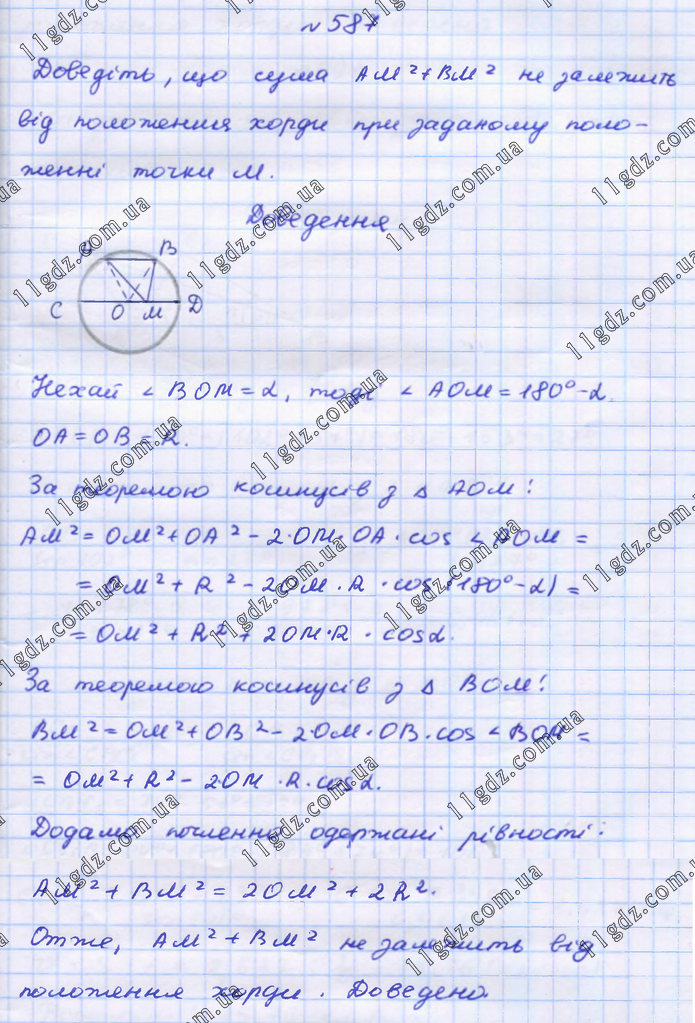 №587
Доведіть, що сума AM²+BM² не залежить
від положення хорди при заданому поло-
женні точки М.
Доведення
A B
C O M D
Нехай ∠BOM=α, тоді ∠AOM=180°-α.
OA=OB=R.
За теоремою косинусів з △ AOM:
AM²=OM²+OA²-2·OM·OA·cos∠AOM=
=OM²+R²-2OM·R·cos(180°-α)=
=OM²+R²+2OM·R·cosα.
За теоремою косинусів з △ BOM:
BM²=OM²+OB²-2·OM·OB·cos∠BOM=
=OM²+R²-2·OM·R·cosα.
Додамо почленно одержані рівності:
AM²+BM²=2OM²+2R².
Отже, AM²+BM² не залежить від
положення хорди. Доведено.
11gdz.com.ua